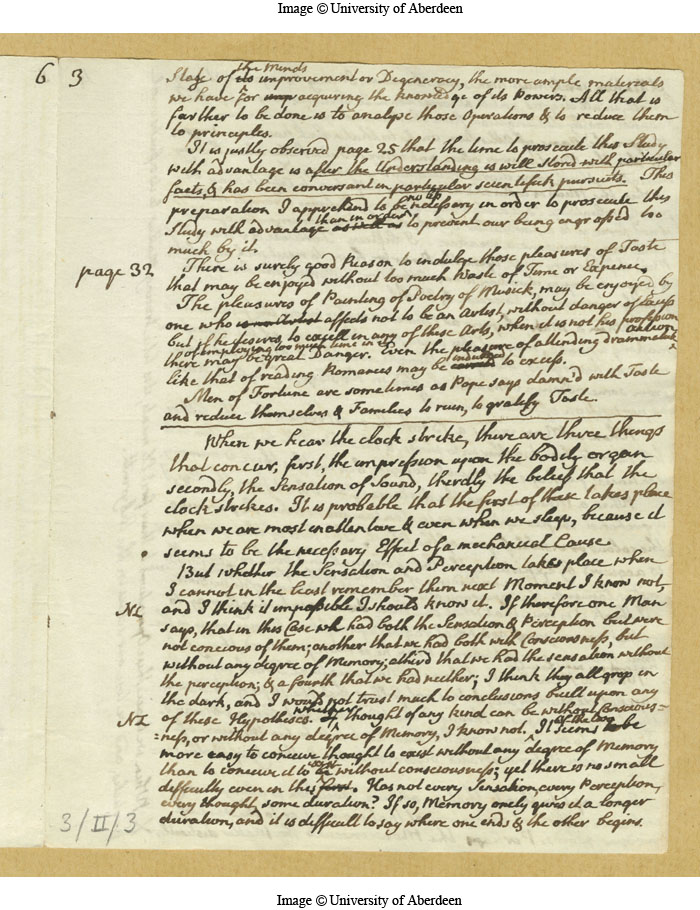 Image © University of Aberdeen
6 3
Stage of its the minds improvement or Degeneracy, the more ample materials
we have for acquiring the knowledge of its Powers. All that is
farther to be done is to analyse those Operations & to reduce them
to principles.
It is justly observed page 25 that the time to prosecute this Study
with advantage is after the Understanding is well stored with particular
facts, & has been conversant in particular scientifick pursuits. This
preparation I apprehend to be no less necessary in order to prosecute this
Study with advantage as well as than in order to prevent our being engrossed too
much by it.
page 32
There is surely good Reason to indulge those pleasures of Taste
that may be enjoyed without too much Waste of Time or Expence.
The pleasures of Painting of Poetry of Musick, may be enjoyed by
one who affects not to be an Artist, without danger of Excess
but if he desires to excell in any of these Arts, when it is not his profession
there may be great Danger of employing too much time in it. Even the pleasure of attending dramatick action
like that of reading Romances may be indulged to excess.
Men of Fortune are sometimes as Pope says damn'd with Taste
and reduce themselves & Families to ruin, to gratify Taste.
When we hear the clock strike, there are three things
that concur, first, the impression upon the bodily organ
secondly, the Sensation of Sound, thirdly the belief that the
clock strikes. It is probable that the first of these takes place
when we are most inattentive & even when we sleep, because it
seems to be the necessary Effect of a mechanical Cause.
But whether the Sensation and Perception takes place when
I cannot in the least remember them next Moment I know not,
and I think it impossible I should know it. If therefore one Man
says, that in this Case we had both the Sensation & Perception but were
not concious of them; another that we had both with Consciousness, but
without any degree of Memory; a third that we had the sensation without
the perception; & a fourth that we had neither; I think they all grop in
the dark, and I would not trust much to conclusions built upon any
of these Hypotheses. If whether thought of any kind can be without Conscious-
=ness, or without any degree of Memory, I know not. It seems of the two to be
more easy to conceive thought to exist without any degree of Memory
than to conceive it to exist without consciousness; yet there is no small
difficulty even in this first. Has not every Sensation, every Perception,
every thought, some duration? If so, Memory onely gives it a longer
duration, and it is difficult to say where one ends & the other begins.
3/II/3
Image © University of Aberdeen